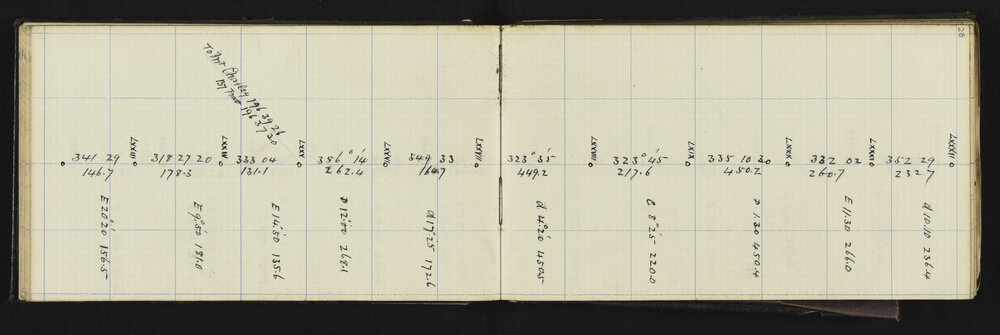 28
To Mr Chorley 196 39 26
By Trav 196 37 20
LXXIII
LXXIV
LXXV
LXXVI
LXXVII
LXXVIII
LXXIX
LXXX
LXXXI
LXXXII
341 29
146.7
318 27 20
178.3
333 04
131.1
356° 14'
262.4
349 33
164.7
323° 35'
449.2
323° 45'
217.6
335 10 30
450.2
332 02
260.7
352 29
232.7
E 20°20' 156.5
E 9°50' 181.0
E 14°50' 135.6
D 12°00' 268.1
d 17°25' 172.6
d 4°20' 450.5
C 8°25' 220.0
D 1.30 450.4
E 11.30 266.0
d 10.10 236.4